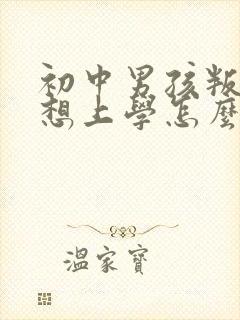 初中男孩叛
想上學怎麼
溫家寶